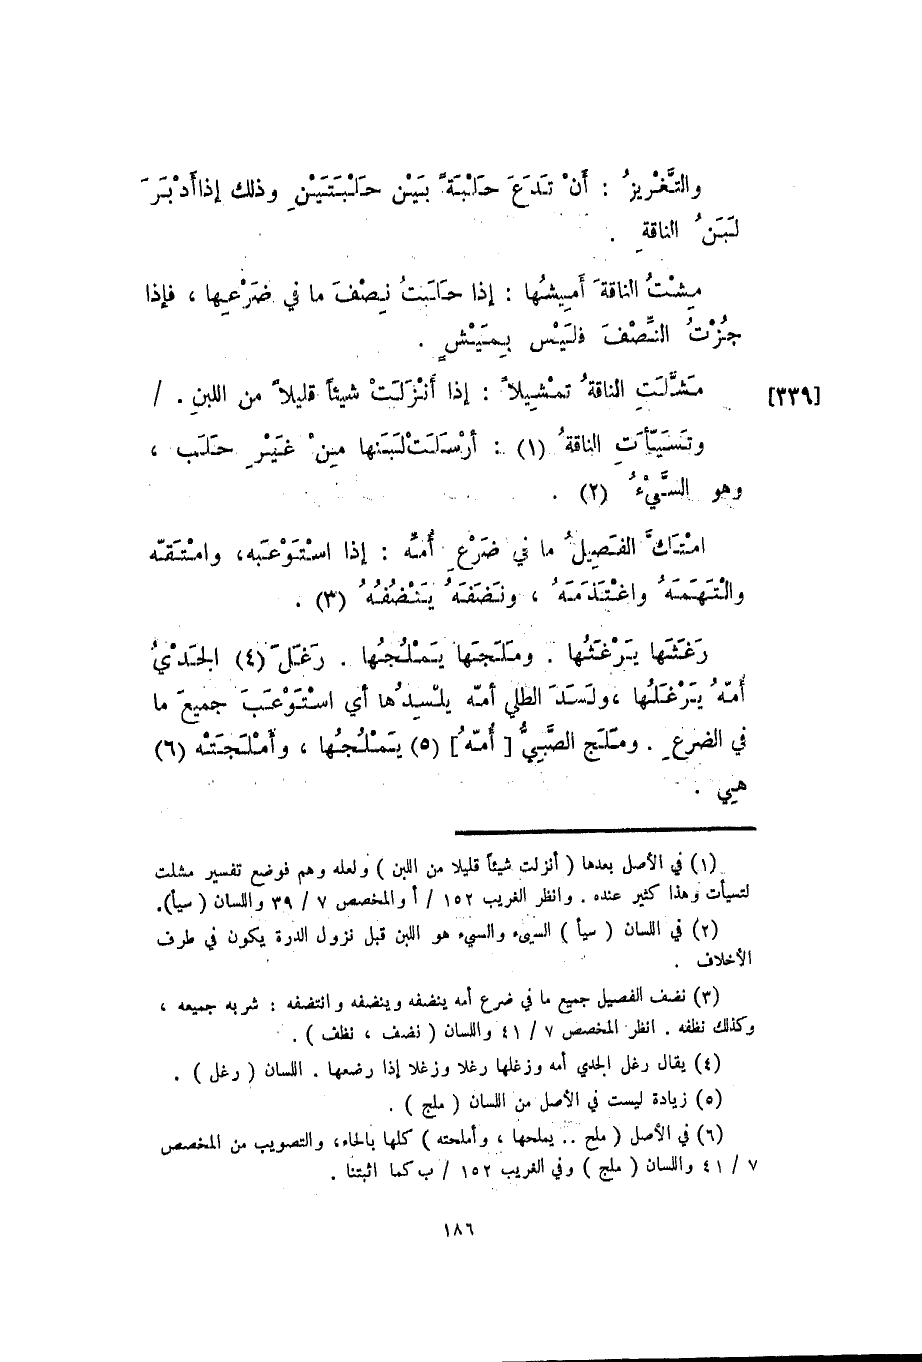 والتَّغْرِيزُ : أَنْ تَدَعَ حَلْبَةً بَيْن حَلْبَتَيْنِ وذلك إذا أَدْبَرَ
لَبَنُ الناقةِ .
مِشْتُ الناقةَ أَمِيشُها : إذا حَلَبتُ نِصْفَ ما في ضَرْعِها ، فإذا
جُزْتُ النِّصْفَ فلَيْس بِمَيْشٍ .
مَشَّلَتِ الناقةُ تمْشِيلاً : إذا أَنْزَلَتْ شيئاً قليلاً من اللبنِ . /
[٣٣٩]
وتَسَيَّأَتِ الناقةُ (١) : أرْسَلَتْ لَبَنها مِنْ غَيْرِ حَلَب ،
وهو السَّيْءُ (٢) .
امْتَكَّ الفَصِيلُ ما في ضَرْعِ أُمِّه : إذا اسْتَوْعَبه، وامْتَقّه
والْتَهَمَهُ واغْتَذَمَهُ ، ونَضَفَهُ يَنْضُفُهُ (٣) .
رَغَثَها يَرْغَثُها . ومَلَجَها يَمْلُجُها . رَغَلَ (٤) الجَدْيُ
أُمّهُ يَرْغَلُها ، ولَسَدَ الطلي أمّه يلْسِدُها أي اسْتَوْعَبَ جميعَ ما
في الضرعِ . ومَلَج الصَّبِيُّ [ أُمّهُ ] (٥) يَمْلُجُها ، وأَمْلَجَتْه (٦)
هي .
(١) في الأصل بعدها ( أنزلت شيئاً قليلا من اللبن ) ولعله وهم فوضع تفسير مشلت
لتسيأت وهذا كثير عنده . وانظر الغريب ١٥٢ / أ والمخصص ٧ / ٣٩ واللسان ( سيأ).
(٢) في اللسان ( سيأ ) السيء والسيء هو اللبن قبل نزول الدرة يكون في طرف
الأخلاف .
(٣) نضف الفصيل جميع ما في ضرع أمه ينضفه وينضفه وانتضفه : شربه جميعه ،
وكذلك نظفه . انظر المخصص ٧ / ٤١ واللسان ( نضف ، نظف ) .
(٤) يقال رغل الجدي أمه وزغلها رغلا وزغلا إذا رضعها . اللسان ( رغل ) .
(٥) زيادة ليست في الأصل من اللسان ( ملج ) .
(٦) في الأصل ( ملح .. يملحها ، وأملحته ) كلها بالحاء، والتصويب من المخصص
٧ / ٤١ واللسان ( ملج ) وفي الغريب ١٥٢ / ب كما اثبتنا .
١٨٦